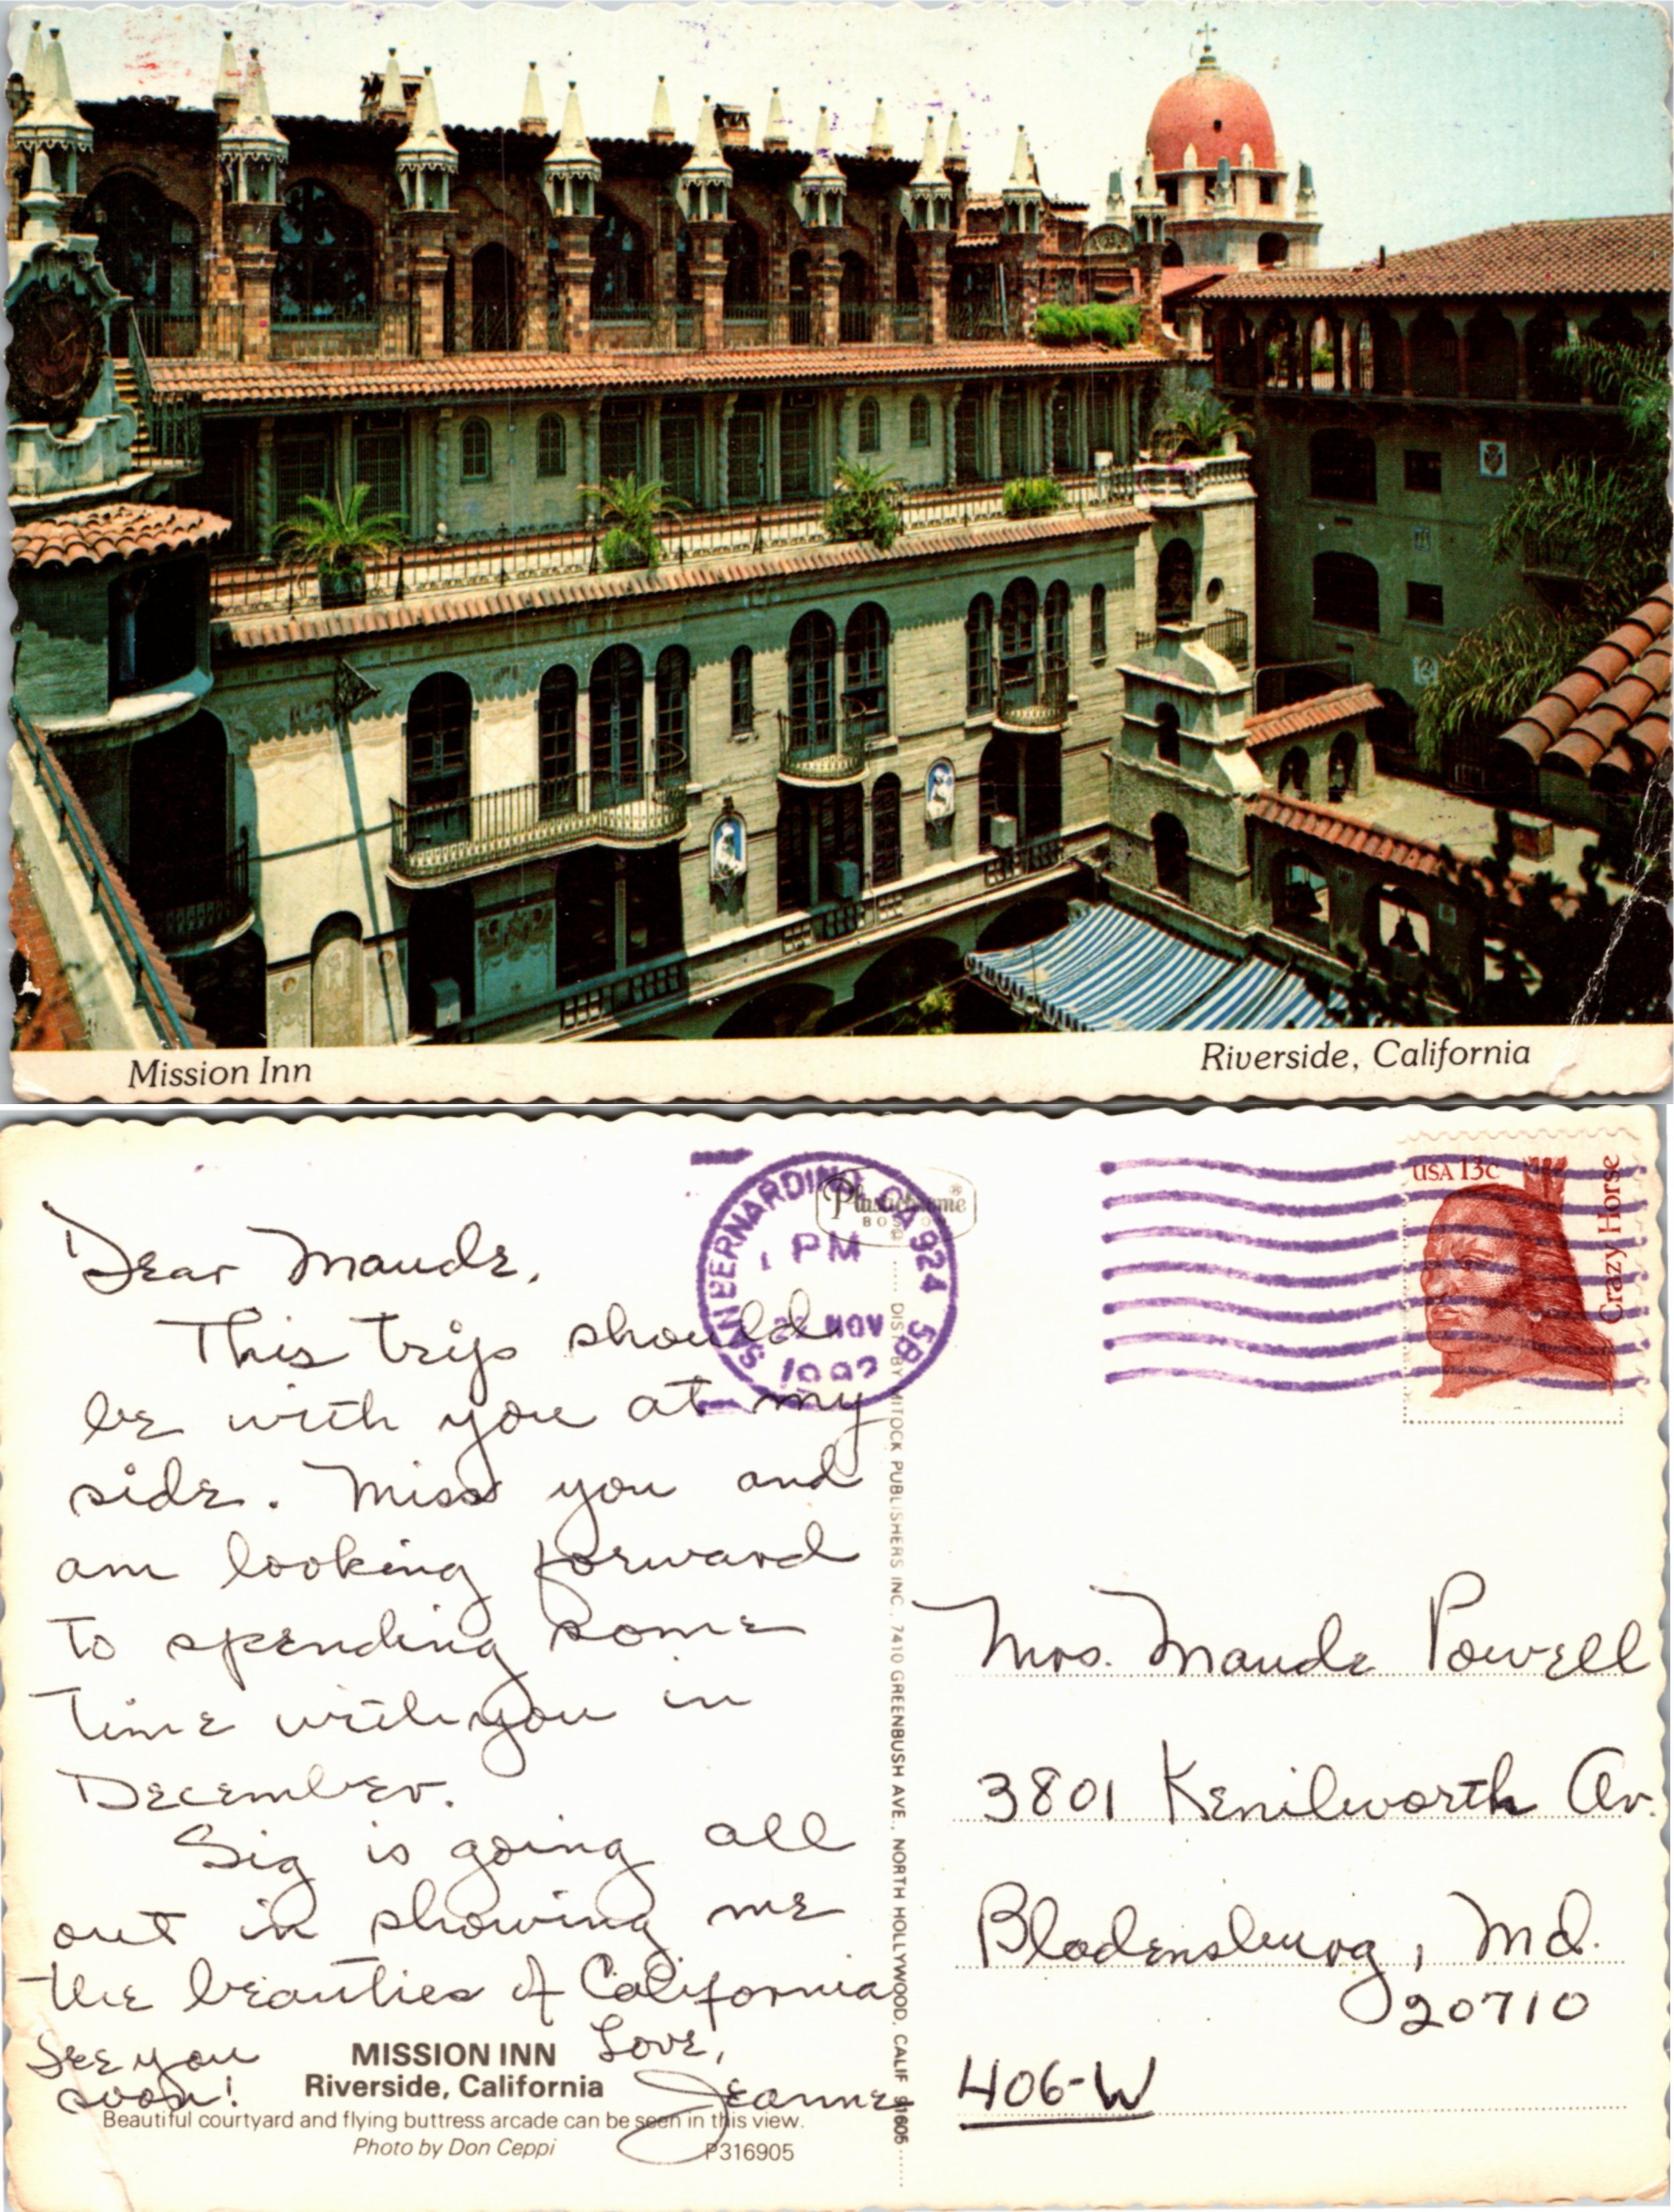 Mission Inn
Riverside, California
Dear Maude,
This trip should
be with you at my
side. Miss you and
am looking forward
to spending some
time with you in
December.
Sig is going all
out in showing me
the beauties of California
See you
soon!
Love,
Jeanne
MISSION INN
Riverside, California
Beautiful courtyard and flying buttress arcade can be seen in this view.
Photo by Don Ceppi
P316905
SAN BERNARDINO CA 924 5B
PM
NOV
Plastichrome ®
DIST. BY MITOCK PUBLISHERS INC., 7410 GREENBUSH AVE., NORTH HOLLYWOOD, CALIF 91605
USA 13c
Crazy Horse
Mrs. Maude Powell
3801 Kenilworth Av.
Bladensburg, Md.
20710
406-W